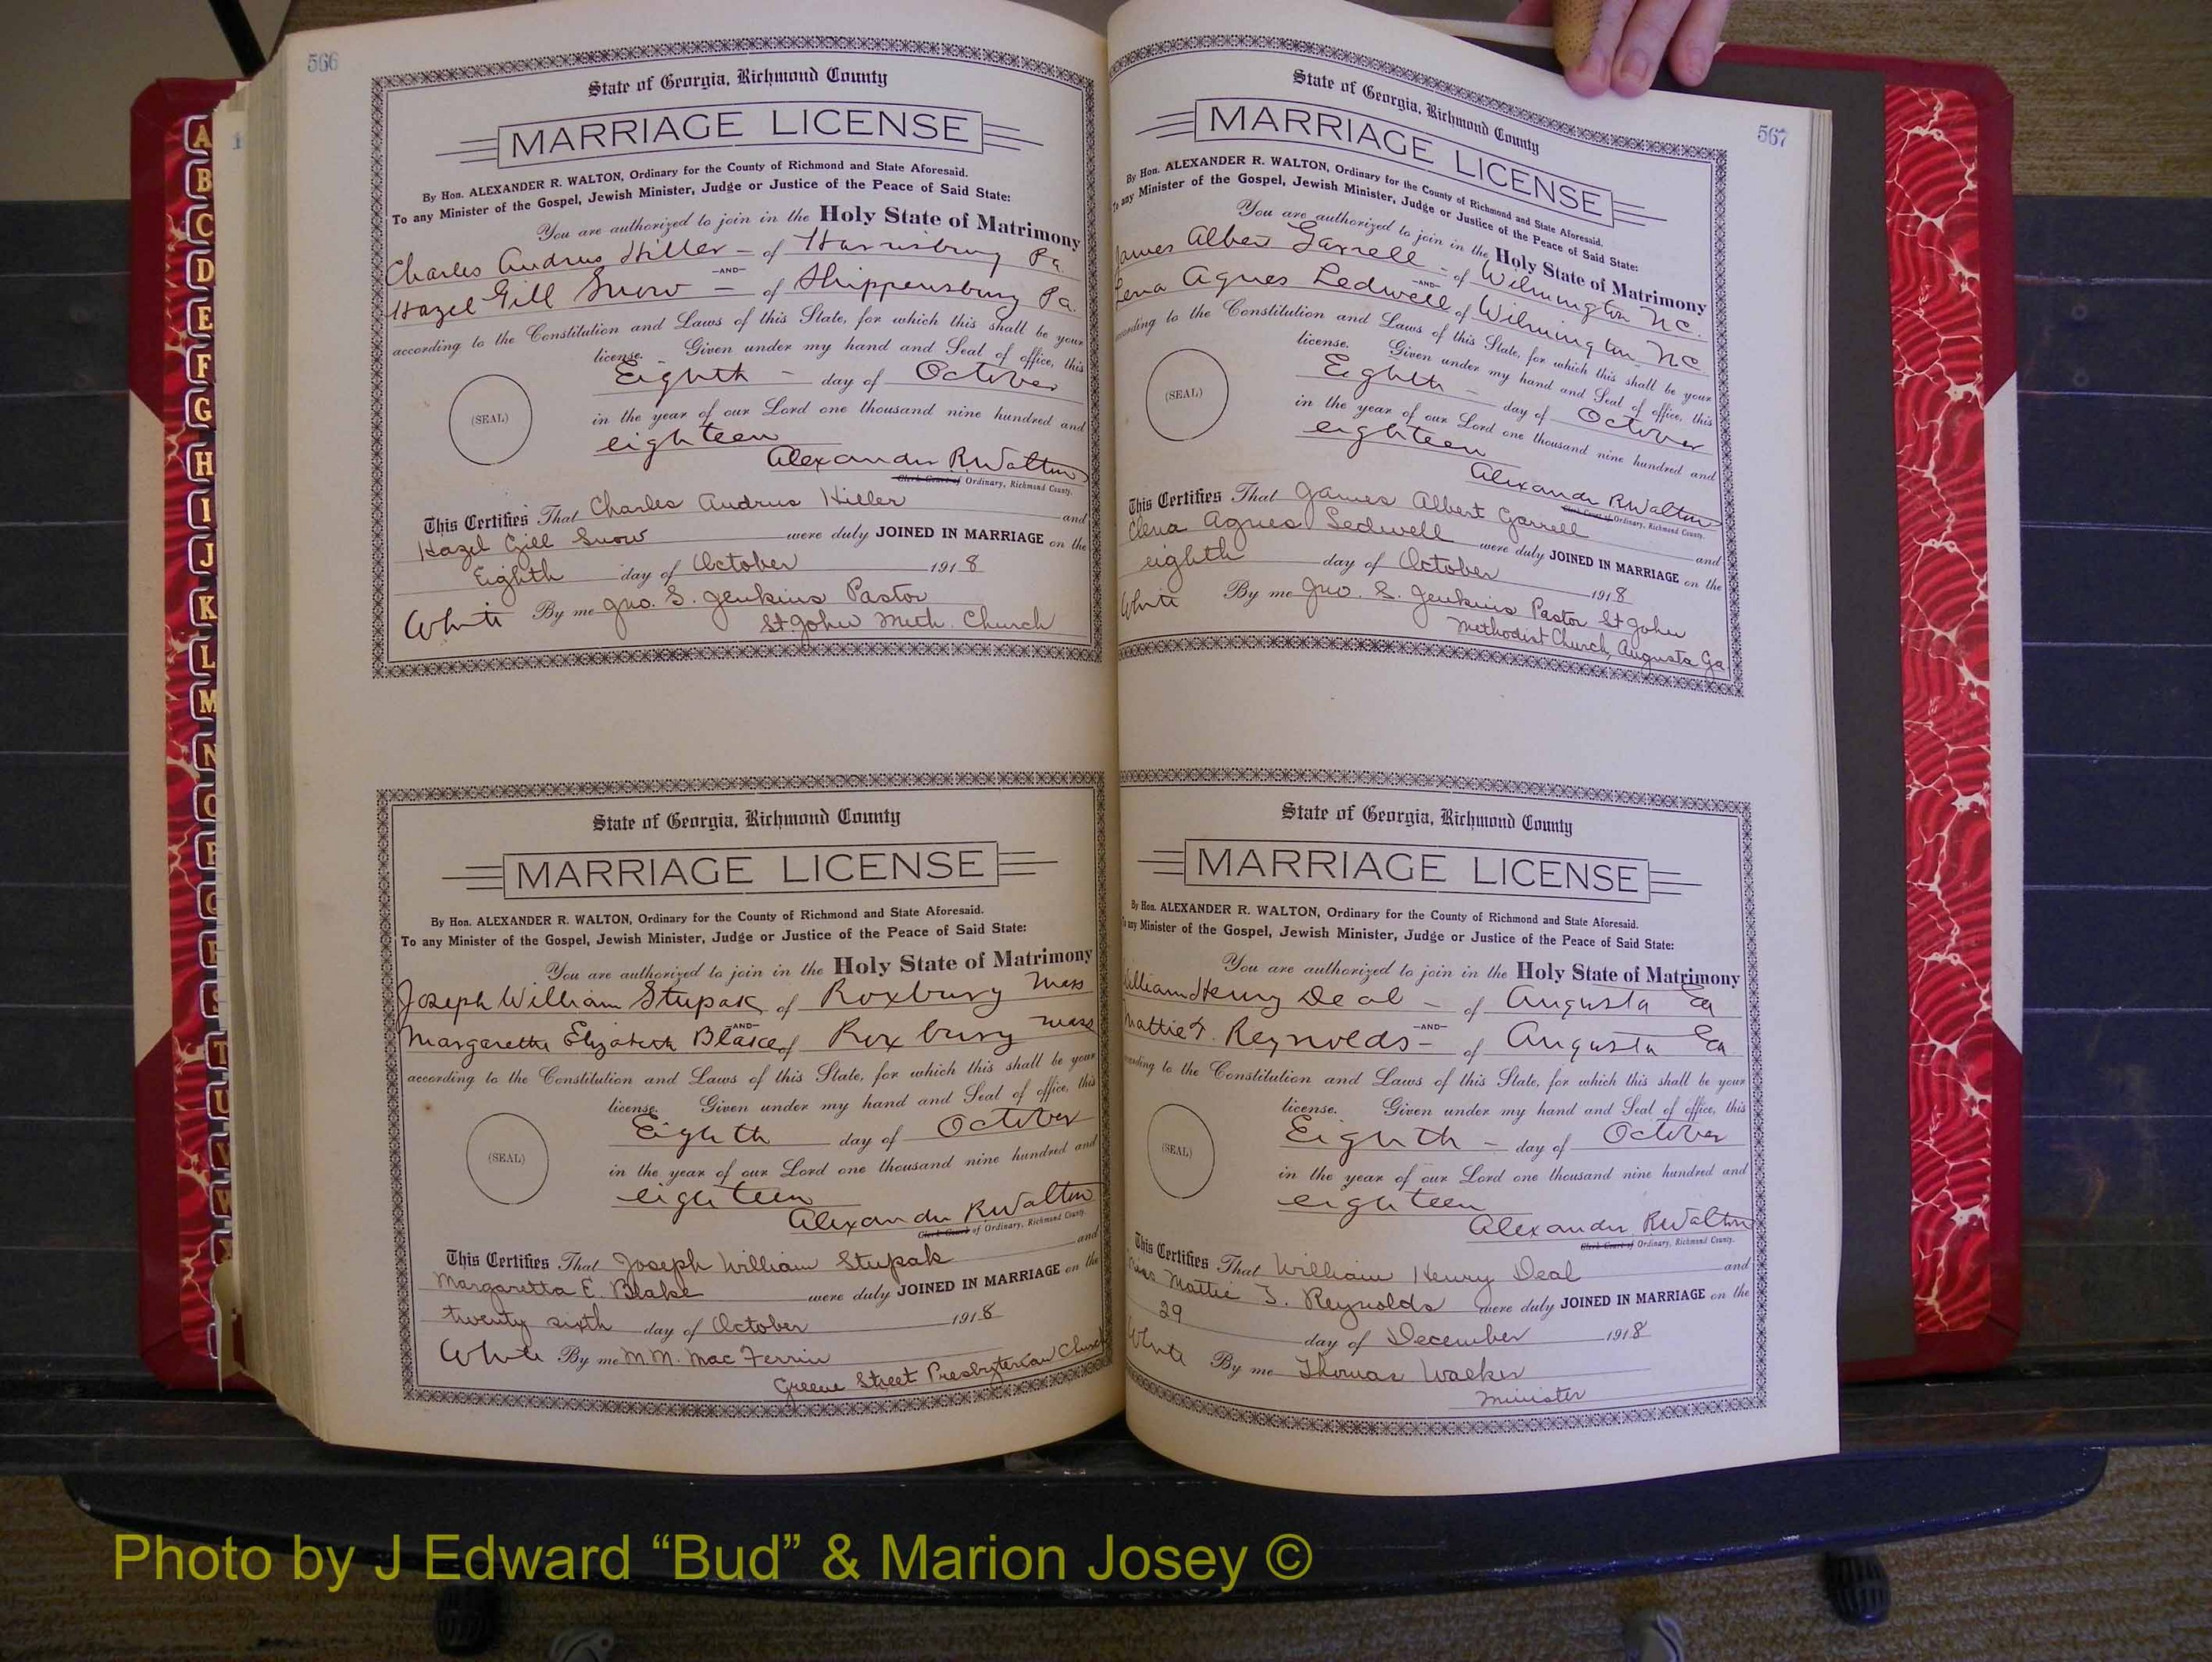 566
State of Georgia, Richmond County
MARRIAGE LICENSE
By Hon. ALEXANDER R. WALTON, Ordinary for the County of Richmond and State Aforesaid.
To any Minister of the Gospel, Jewish Minister, Judge or Justice of the Peace of Said State:
You are authorized to join in the Holy State of Matrimony
Charles Andrus Hiller - of Harrisburg Pa
AND
Hazel Gill Snow - of Shippensburg Pa.
according to the Constitution and Laws of this State, for which this shall be your
license. Given under my hand and Seal of office, this
Eighth - day of October
(SEAL)
in the year of our Lord one thousand nine hundred and
eighteen
Alexander R. Walton
Clerk Court of Ordinary, Richmond County.
This Certifies That Charles Andrus Hiller and
Hazel Gill Snow were duly JOINED IN MARRIAGE on the
Eighth day of October 1918
White By me Jno. S. Jenkins Pastor
St John Meth. Church
State of Georgia, Richmond County
MARRIAGE LICENSE
By Hon. ALEXANDER R. WALTON, Ordinary for the County of Richmond and State Aforesaid.
To any Minister of the Gospel, Jewish Minister, Judge or Justice of the Peace of Said State:
You are authorized to join in the Holy State of Matrimony
Joseph William Stupak of Roxbury Mass
AND
Margaretta Elizabeth Blake of Roxbury Mass
according to the Constitution and Laws of this State, for which this shall be your
license. Given under my hand and Seal of office, this
Eighth day of October
(SEAL)
in the year of our Lord one thousand nine hundred and
eighteen
Alexander R Walton
Clerk Court of Ordinary, Richmond County.
This Certifies That Joseph William Stupak and
Margaretta E. Blake were duly JOINED IN MARRIAGE on the
twenty sixth day of October 1918
White By me M. M. Mac Ferrin
Greene Street Presbyterian Church
567
State of Georgia, Richmond County
MARRIAGE LICENSE
By Hon. ALEXANDER R. WALTON, Ordinary for the County of Richmond and State Aforesaid.
To any Minister of the Gospel, Jewish Minister, Judge or Justice of the Peace of Said State:
You are authorized to join in the Holy State of Matrimony
James Albert Garrell - of Wilmington NC.
AND
Lena Agnes Ledwell of Wilmington NC
according to the Constitution and Laws of this State, for which this shall be your
license. Given under my hand and Seal of office, this
Eighth - day of October
(SEAL)
in the year of our Lord one thousand nine hundred and
eighteen
Alexander R Walton
Clerk Court of Ordinary, Richmond County.
This Certifies That James Albert Garrell and
Agnes Ledwell were duly JOINED IN MARRIAGE on the
eighth day of October 1918
White By me Jno. S. Jenkins Pastor St John
Methodist Church, Augusta Ga
State of Georgia, Richmond County
MARRIAGE LICENSE
By Hon. ALEXANDER R. WALTON, Ordinary for the County of Richmond and State Aforesaid.
To any Minister of the Gospel, Jewish Minister, Judge or Justice of the Peace of Said State:
You are authorized to join in the Holy State of Matrimony
William Henry Deal - of Augusta Ga
AND
Mattie Reynolds - of Augusta Ga
according to the Constitution and Laws of this State, for which this shall be your
license. Given under my hand and Seal of office, this
Eighth - day of October
(SEAL)
in the year of our Lord one thousand nine hundred and
eighteen
Alexander R Walton
Clerk Court of Ordinary, Richmond County.
This Certifies That William Henry Deal and
Miss Mattie Reynolds were duly JOINED IN MARRIAGE on the
29 day of December 1918
White By me Thomas Walker
Minister
A
B
C
D
E
F
G
H
I
J
K
L
M
N
O
P
Q
R
S
T
U
V
W
Photo by J Edward “Bud” & Marion Josey ©